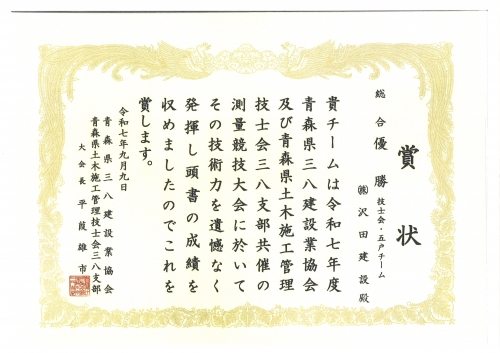 賞状
総合優勝
技士会・五戸チーム
㈱沢田建設殿
貴チームは令和七年度
青森県三八建設業協会
及び青森県土木施工管理
技士会三八支部共催の
測量競技大会に於いて
その技術力を遺憾なく
発揮し頭書の成績を
収めましたのでこれを
賞します。
令和七年九月九日
青森県三八建設業協会
青森県土木施工管理技士会三八支部
大会長 平葭雄市